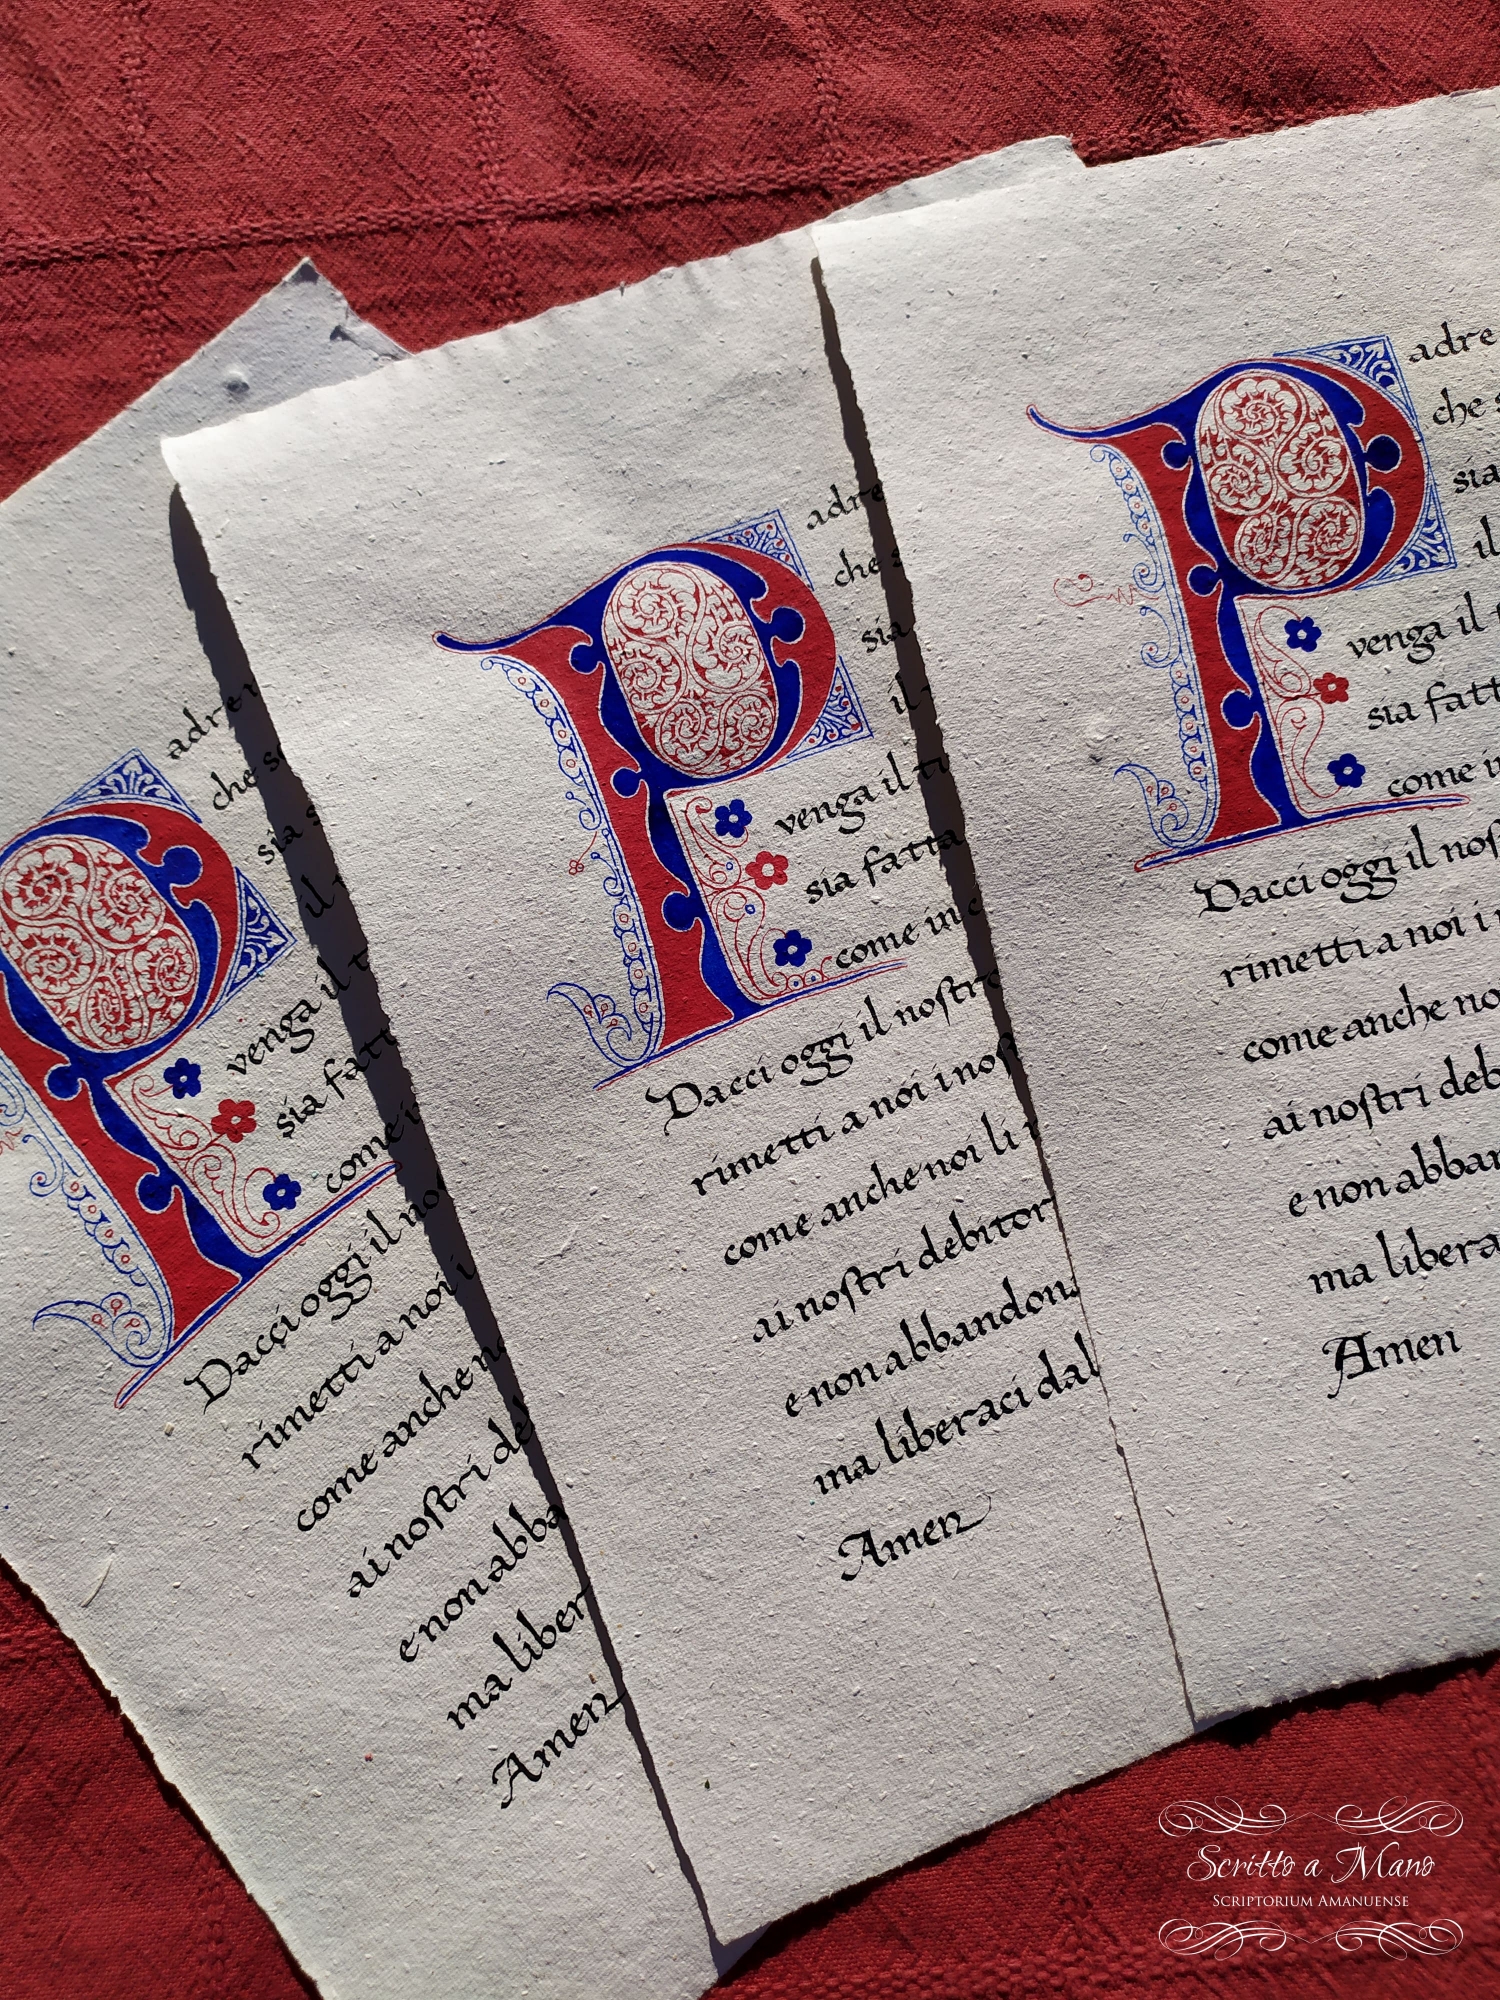 Padre
che
sia
il
venga il
sia fatt
come i
Dacci oggi il no
rimetti a noi i
come anche n
ai noſtri de
e non abba
ma liber
Amen
Padre
che s
sia
il
venga il tu
sia fatta
come in c
Dacci oggi il noſtro
rimetti a noi i noſ
come anche noi li r
ai noſtri debitor
e non abbandona
ma liberaci dal
Amen
Padre
che s
sia
il
venga il t
sia fatt
come in
Dacci oggi il noſ
rimetti a noi i
come anche no
ai noſtri deb
e non abban
ma libera
Amen
Scritto a Mano
Scriptorium Amanuense